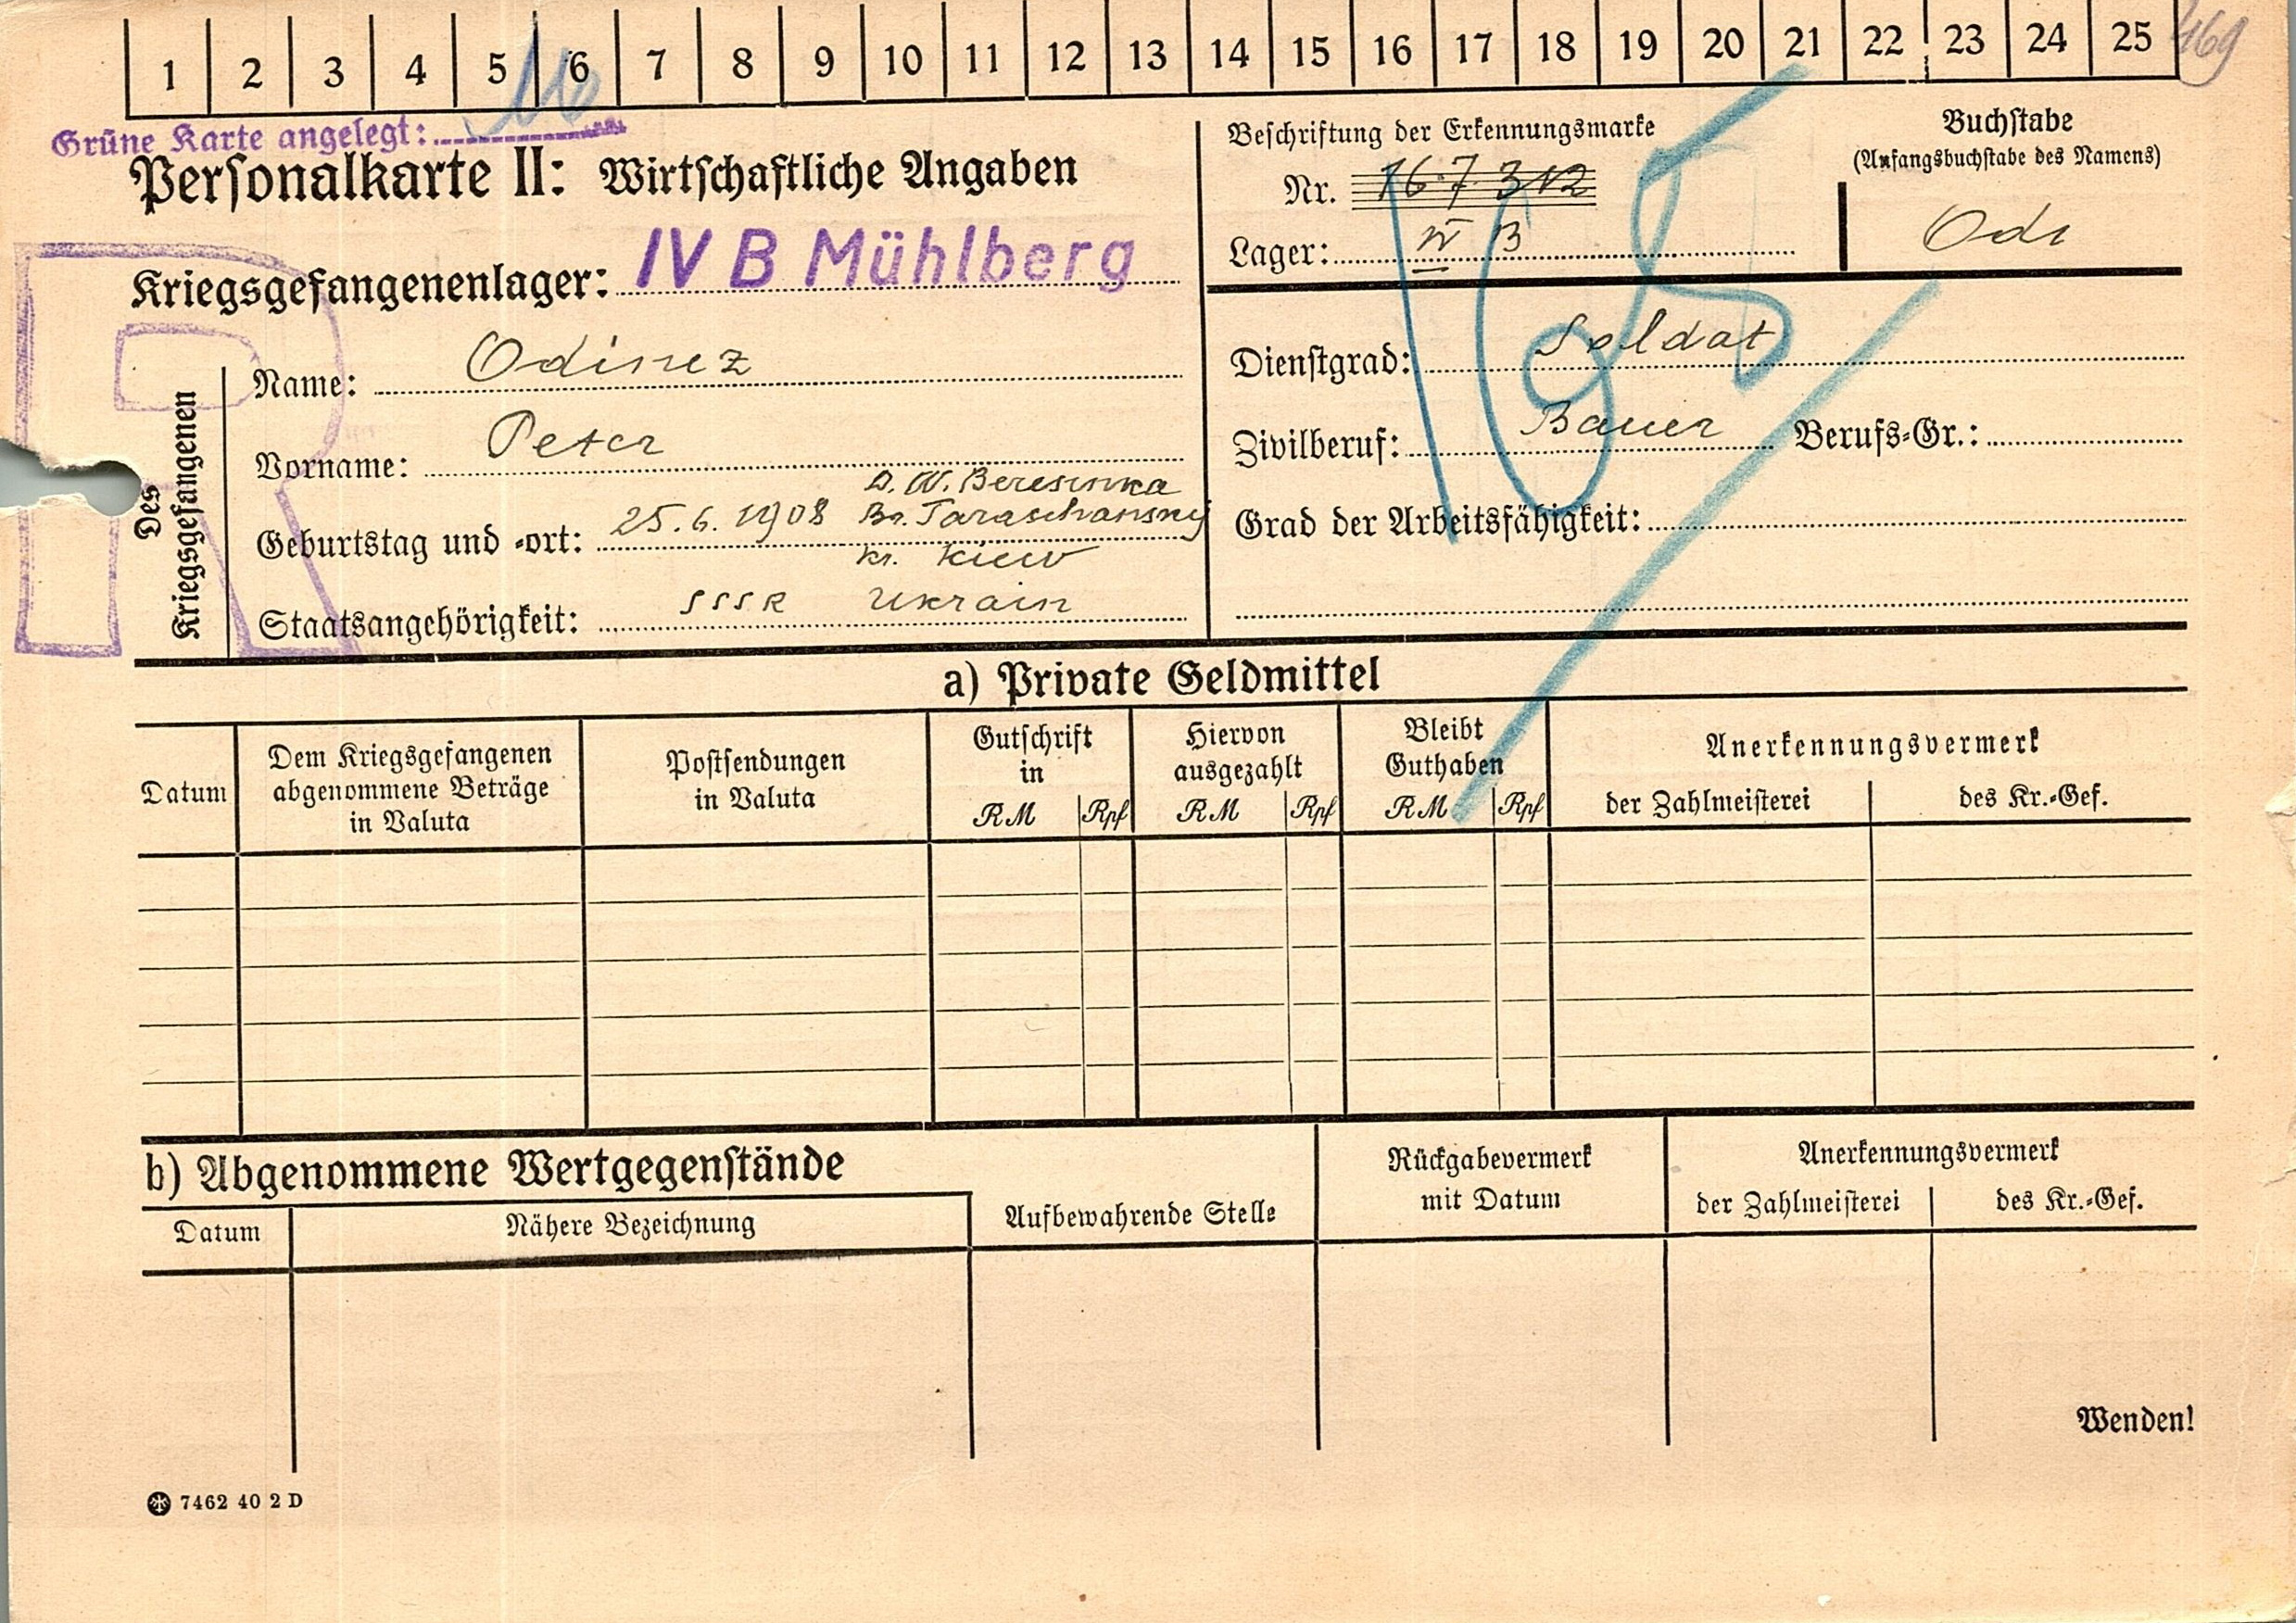 1 2 3 4 5 6 7 8 9 10 11 12 13 14 15 16 17 18 19 20 21 22 23 24 25
469
Grüne Karte angelegt:
Personalkarte II: Wirtschaftliche Angaben
Kriegsgefangenenlager: IV B Mühlberg
Beschriftung der Erkennungsmarke
Nr. 167312
Lager: IV B
Buchstabe
(Anfangsbuchstabe des Namens)
Odi
Des
Kriegsgefangenen
Name: Odinez
Vorname: Peter
Geburtstag und -ort: 25.6.1908 D. W. Beresinka
Br. Taraschansky
Kr. Kiew
Staatsangehörigkeit: SSSR Ukrain
Dienstgrad: Soldat
Zivilberuf: Bauer Berufs-Gr.:
Grad der Arbeitsfähigkeit:
R
165
a) Private Geldmittel
Datum
Dem Kriegsgefangenen
abgenommene Beträge
in Valuta
Postsendungen
in Valuta
Gutschrift
in
RM Rpf
Hiervon
ausgezahlt
RM Rpf
Bleibt
Guthaben
RM Rpf
Anerkennungsvermerk
der Zahlmeisterei des Kr.-Gef.
b) Abgenommene Wertgegenstände
Datum Nähere Bezeichnung
Aufbewahrende Stelle
Rückgabevermerk
mit Datum
Anerkennungsvermerk
der Zahlmeisterei des Kr.-Gef.
Wenden!
7462 40 2 D